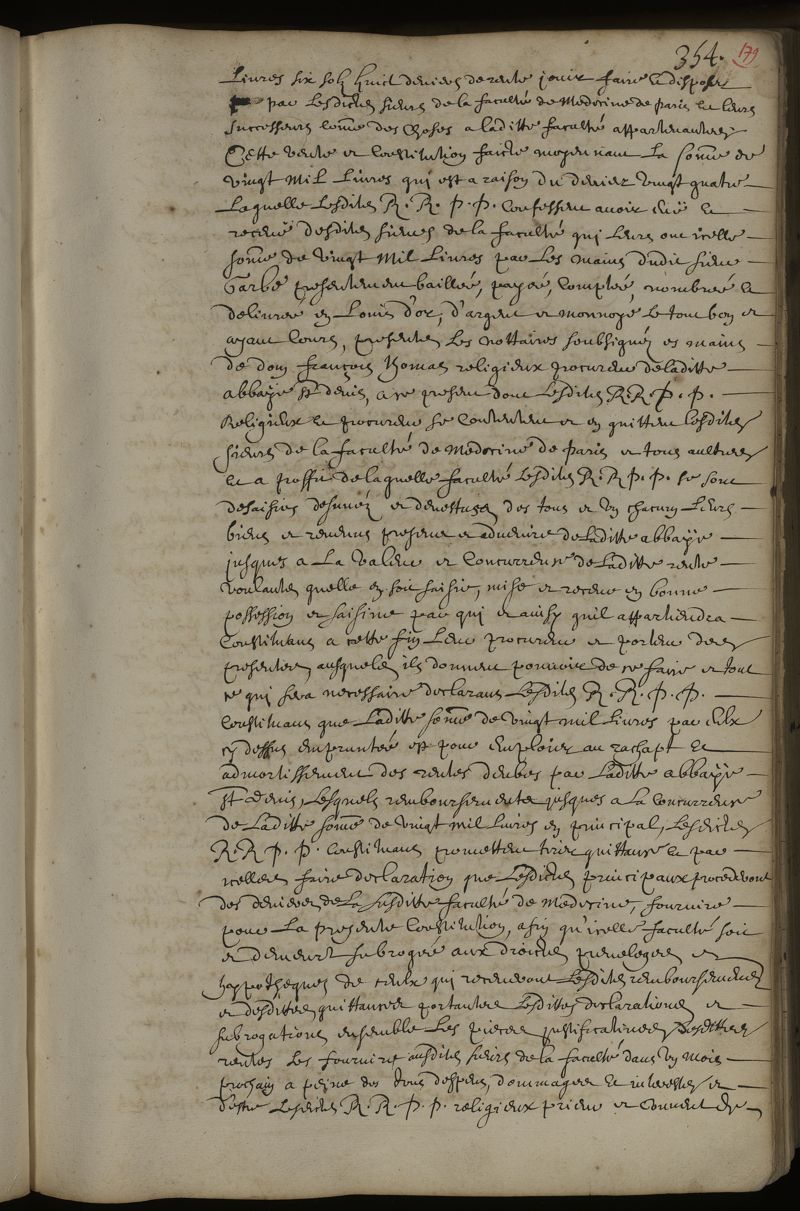 354. 179
Livres six solz huict deniers de rente jouir faire et disposer
par lesdictes sieurs de la faculté de Medecine de paris et leurs
successeurs come des choses a laditte faculté appartenantes
Cette vente et Constitution faicte moyennant la some de
vingt mil Livres qui est a raison du denier vingt quatre
Laquelle lesdites R. R. P. P. confessent avoir eüe et
receüe desdites sieurs de la faculté qui leurs ont icelle
some de vingt mil Livres par les mains dudit sieur
Garbe presentement baillée, payée, Comptée, nombrée et
delivrée en Louis d'or, d'argent et monnoye le tout bon et
ayant Cours, presentes les nottaires soubsignez es mains
de dom françois thomas religieux procureur de laditte
abbaÿe st denis, a ce present dont lesdites R. R. P. P.
Religieux et procureur se contentent et en quittent lesdites
sieurs de la faculté de Medecine de paris et tous aultres
et a proffit de laquelle faculté lesdites R. R P. P. se sont
desaisies desmiz et devestuse des tous et un chacun leurs
biens et revenus presens et advenire de laditte abbaÿe
jusques a La valeur et Concurrense de laditte rente
voulantes quelle en soit saisie, mise et receue en bonne
possession et saisine par qui et ainsy quil appartiendra
Constituans a cette fin leur procureur et porteur des
presentes ausqueles ils donnent pouvoir de ce faire et tout
ce qui sera necessaire declarans lesdites R. R. P. P.
Constituans que laditte some de vingt mil livres par eulx
cy dessus empruntée est pour emploier au rachapt et
admortissement des rentes deubes par laditte abbaÿe
st denis, lesquels remboursements jusques a la Concurrense
de laditte some de vingt mil livres en principal, lesdictes
R. R P. P. Constituans promettent tirer quittance et par
icelles faire declaration que lesdictes principaux procederont
des deniers de la susditte faculté de Medecine, fournire
pour la presente Constitution, afin qu'icelle faculté soit
et demeure subrogée aux droictes privileges et
hyppotheques de ceulx qui recevront lesdites remboursements
et desdittes quittances portantes lesdittes declarations et
subrogations ensemble les pieces justificatives desdittes
rentes les fournire ausdites sieurs de la faculté dans un mois
prochain a peine des tous despens, dommages et interestes et
d'estre lesdictes R. R. P. P. religieux prieur et Convent de